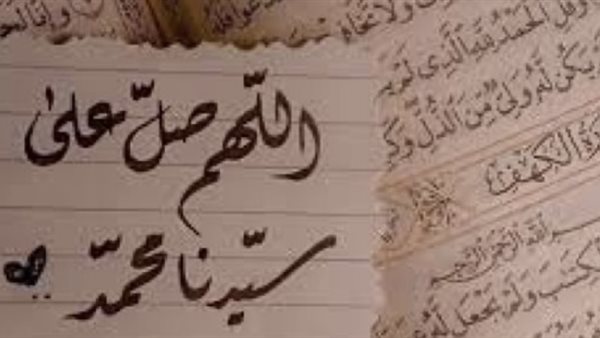 اللّهم صلّ على
سيّدنا محمّد
وَقُلِ الْحَمْدُ لِلَّهِ الَّذِي لَمْ
يَكُن لَّهُ وَلِيٌّ مِّنَ الذُّلِّ وَ
الكهف
بسم الله الرحمن الرحيم
وَلَمْ يَجْعَل لَّهُ